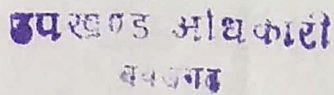 उपखण्ड अधिकारी